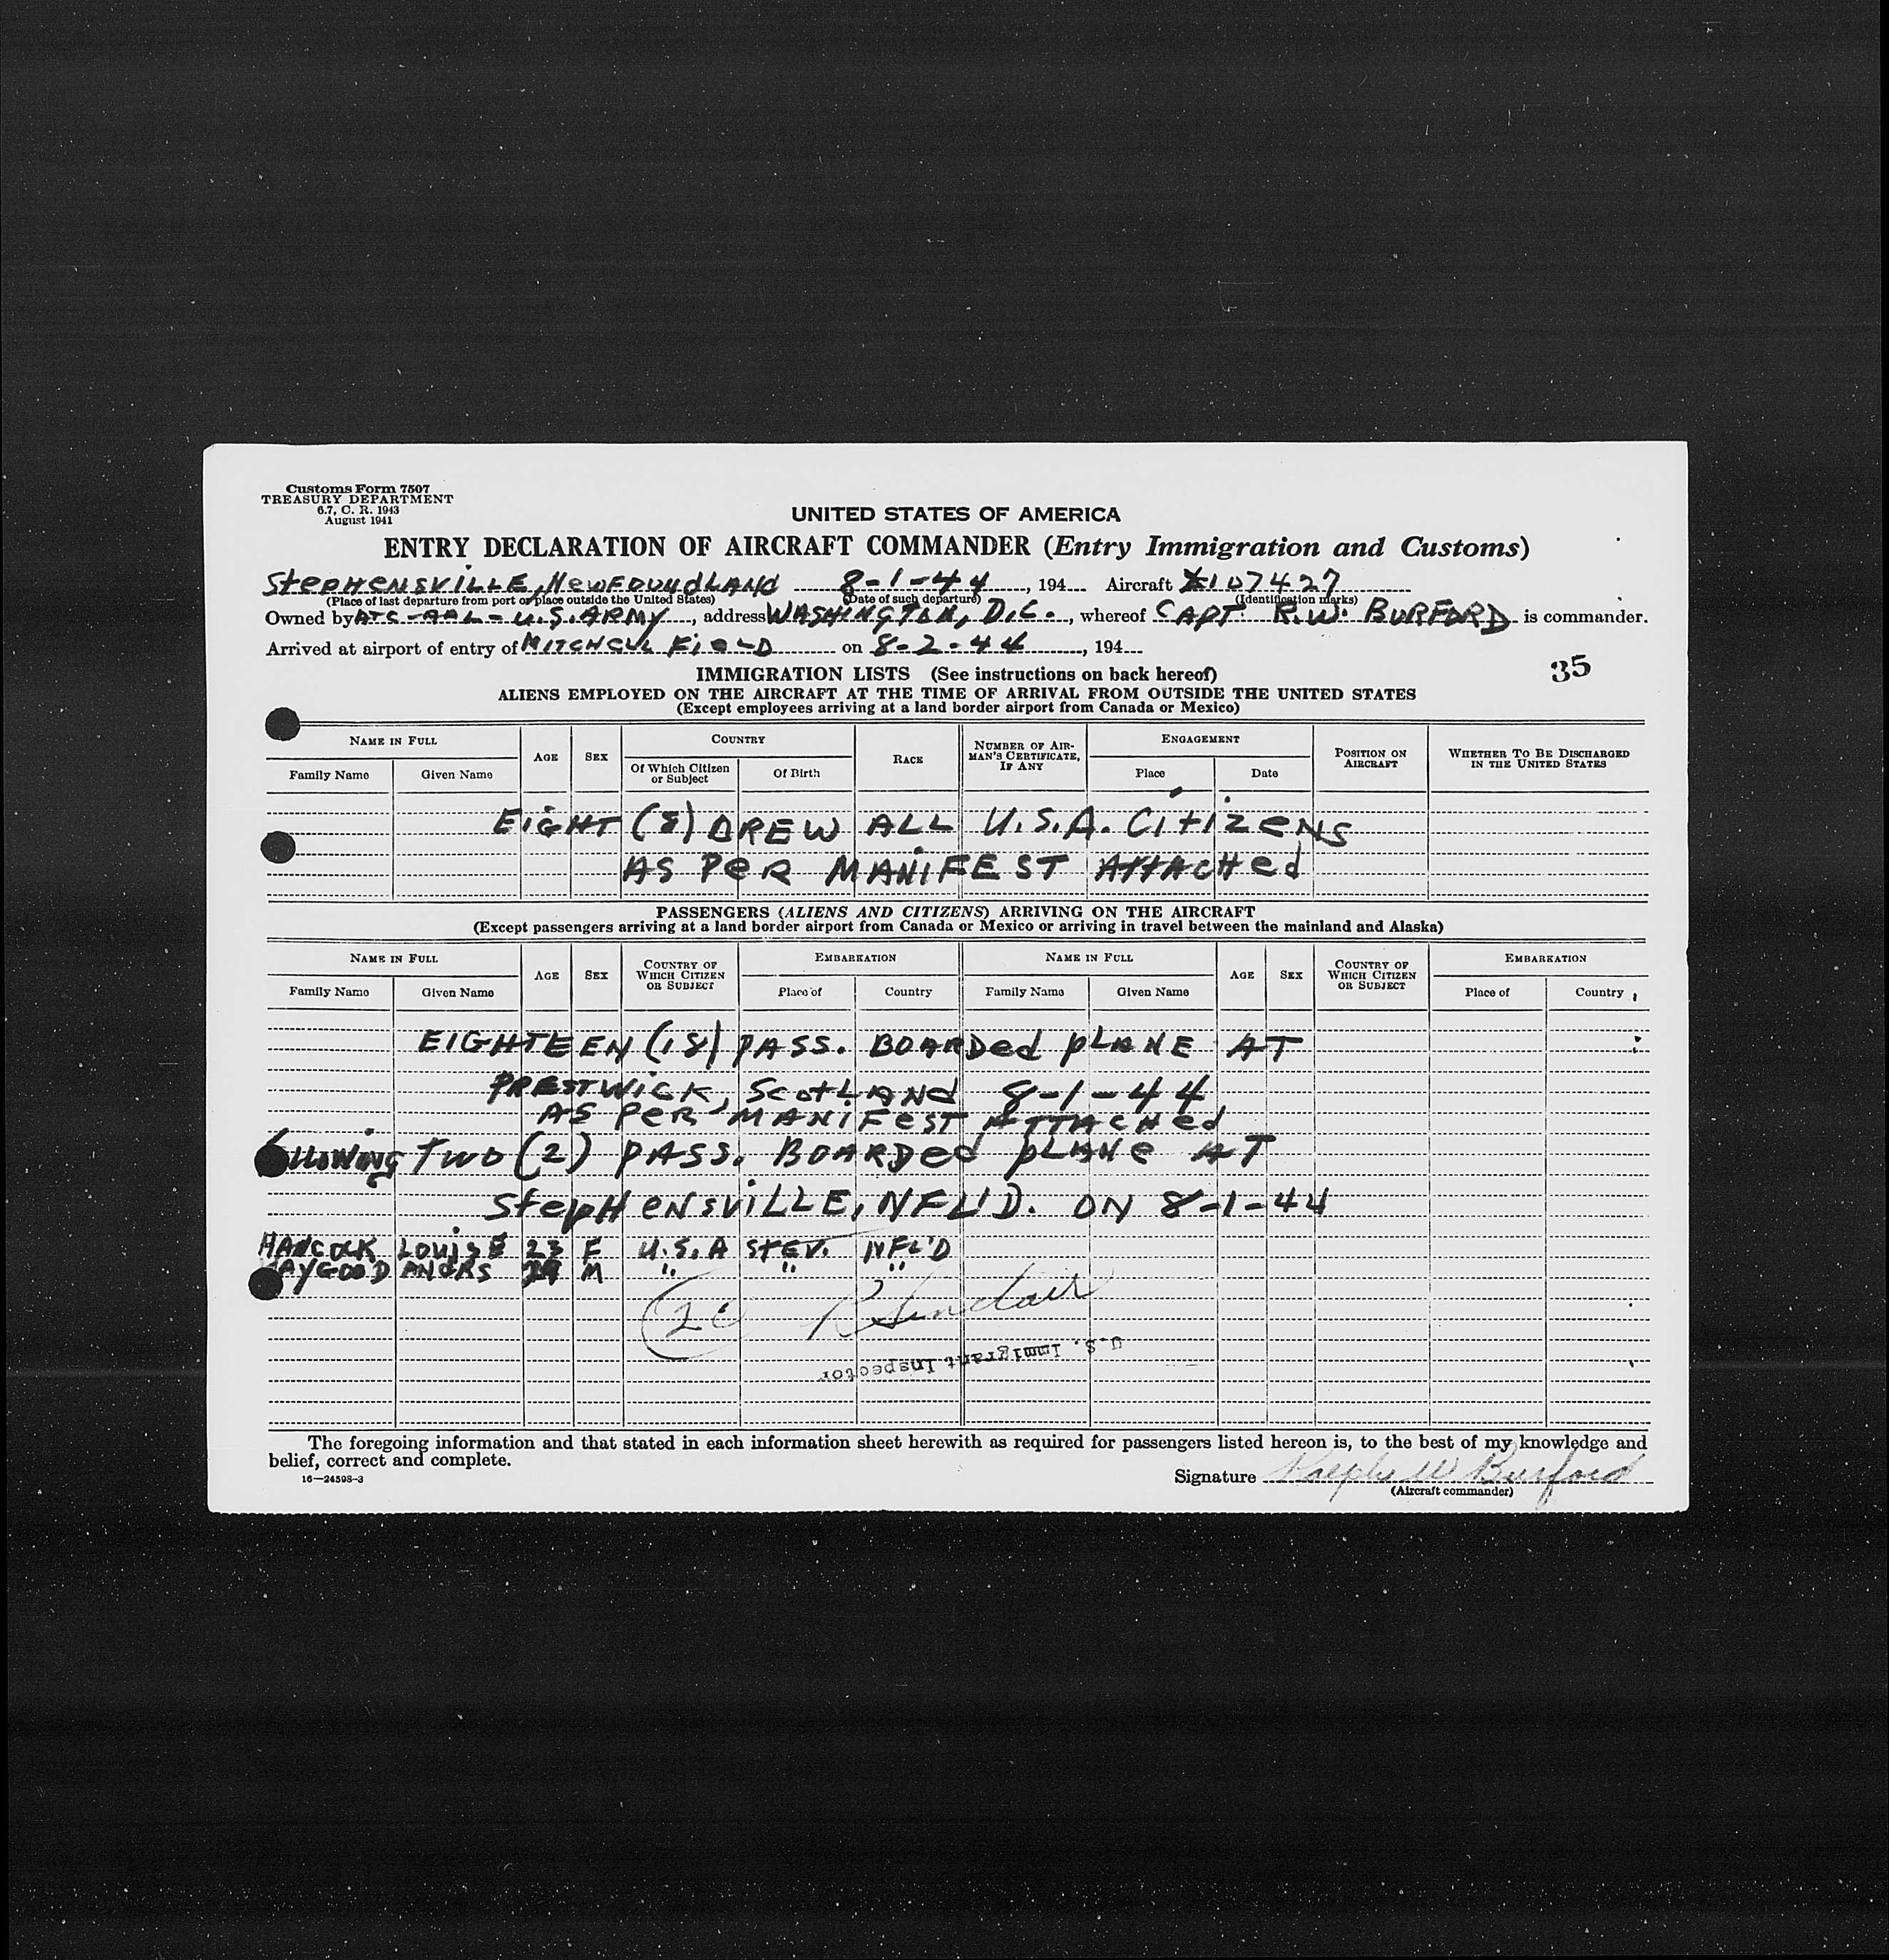 Customs Form 7507
TREASURY DEPARTMENT
6.7, C. R. 1943
August 1941
UNITED STATES OF AMERICA
ENTRY DECLARATION OF AIRCRAFT COMMANDER (Entry Immigration and Customs)
STEPHENSVILLE, NEWFOUNDLAND 8-1-44, 194 Aircraft 107427
(Place of last departure from port or place outside the United States) (Date of such departure) (Identification marks)
Owned by ATC - U.S. ARMY, address WASHINGTON, D.C., whereof CAPT. R.W. BURFORD is commander.
Arrived at airport of entry of MITCHELL FIELD on 8-2-44, 194
35
IMMIGRATION LISTS (See instructions on back hereof)
ALIENS EMPLOYED ON THE AIRCRAFT AT THE TIME OF ARRIVAL FROM OUTSIDE THE UNITED STATES
(Except employees arriving at a land border airport from Canada or Mexico)
NAME IN FULL AGE SEX COUNTRY RACE NUMBER OF AIRMAN'S CERTIFICATE, IF ANY ENGAGEMENT POSITION ON AIRCRAFT WHETHER TO BE DISCHARGED IN THE UNITED STATES
Family Name Given Name Of Which Citizen or Subject Of Birth Place Date
EIGHT (8) CREW ALL U.S.A. CITIZENS
AS PER MANIFEST ATTACHED
PASSENGERS (ALIENS AND CITIZENS) ARRIVING ON THE AIRCRAFT
(Except passengers arriving at a land border airport from Canada or Mexico or arriving in travel between the mainland and Alaska)
NAME IN FULL AGE SEX COUNTRY OF WHICH CITIZEN OR SUBJECT EMBARKATION NAME IN FULL AGE SEX COUNTRY OF WHICH CITIZEN OR SUBJECT EMBARKATION
Family Name Given Name Place of Country Family Name Given Name Place of Country
EIGHTEEN (18) PASS. BOARDED PLANE AT
PRESTWICK, SCOTLAND 8-1-44
AS PER MANIFEST ATTACHED
TWO (2) PASS. BOARDED PLANE AT
STEPHENSVILLE, NFL'D. ON 8-1-44
HANCOCK LOUISE 23 F U.S.A STEV. NFL'D
AYGOOD M " " "
R Sinclair
U.S. Immigrant Inspector
The foregoing information and that stated in each information sheet herewith as required for passengers listed hereon is, to the best of my knowledge and
belief, correct and complete.
16—24598-3
Signature Ralph W Burford
(Aircraft commander)